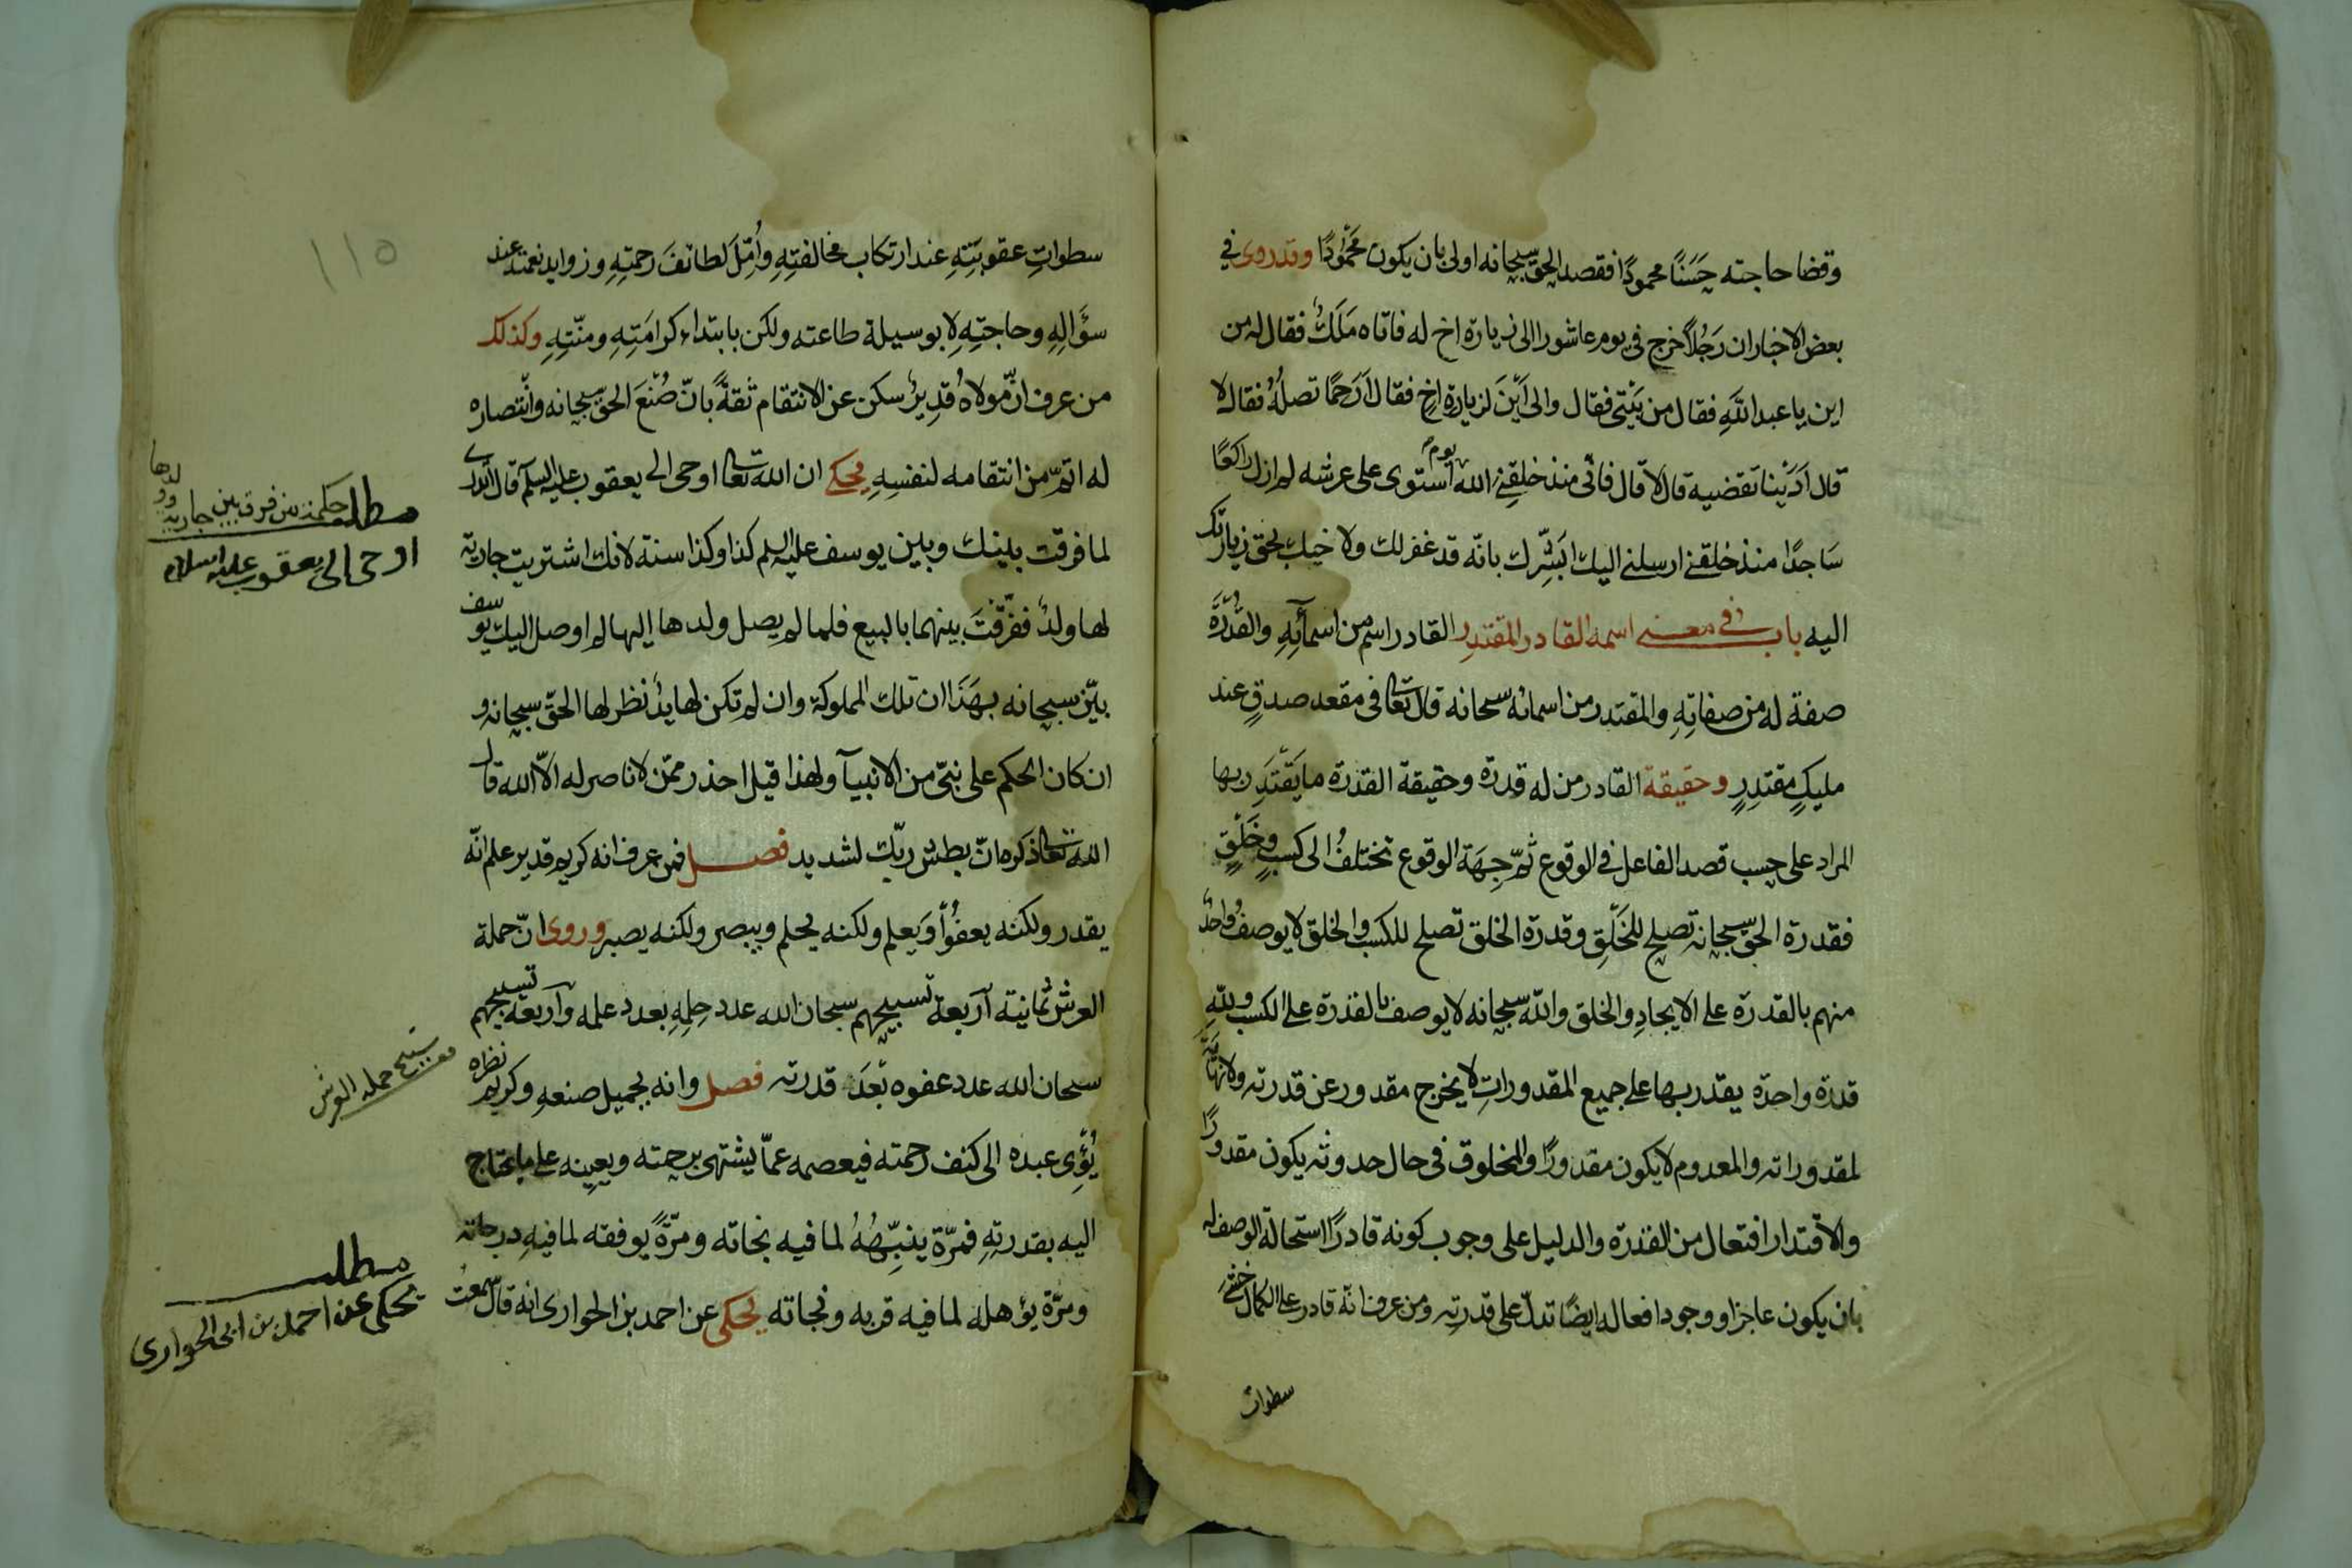 وقضا حاجته حسنًا محمودًا فقصد الحق سبحانه اولى بان يكون محمودًا وقد روى في
بعض الاخبار ان رجلًا خرج فى يوم عاشورا الى زيارة اخ له فاتاه ملكٌ فقال له من
اين يا عبد اللهِ فقال من بيتى فقال والى اين لزيارة اخٍ فقال أرحمًا تصله فقال لا
قال ادينا تقضيه قال لا قال فانى منذ خلقنى الله يوم استوى على عرشه لم ازل راكعًا
ساجدًا منذ خلقنى ارسلنى اليك ابشّرك بانّه قد غفر لك ولا خيب بحق زيارتك
اليه باب فى معنى اسمه القادر المقتدر القادر اسم من اسمآئِهِ والقدرة
صفة له من صفاتِهِ والمقتدر من اسمائه سبحانه قال تعا فى مقعد صدقٍ عند
مليكٍ مقتدرٍ وحقيقة القادر من له قدرة وحقيقة القدرة ما يقتدر بها
المراد على حسب قصد الفاعل فى الوقوع ثمّ جهة الوقوع تختلفُ الى كسبٍ وخلقٍ
فقدرة الحق سبحانه تصلح للخلقِ وقدرة الخلق تصلح للكسب والخلق لا يوصف واحدٌ
منهم بالقدرة على الايجادِ والخلق واللّه سبحانه لا يوصف بالقدرة على الكسب وللّهِ
قدرة واحدة يقدر بها على جميع المقدوراتِ لا يخرج مقدور عن قدرته ولا نهاية
لمقدوراته والمعدوم لا يكون مقدورًا والمخلوق فى حال حدوثه يكون مقدورًا
والاقتدار افتعال من القدرة والدليل على وجوب كونه قادرًا استحالة الوصف له
بان يكون عاجزا ووجود افعاله ايضًا تدلّ على قدرته ومن عرف انّه قادر على الكمال خشى
سطوات
سطواتِ عقوبتِهِ عند ارتكاب مخالفتِهِ وأمّل لطائف رحمتِهِ وزوايد نعمته عند
سؤالِهِ وحاجتِهِ لا بوسيلة طاعته ولكن بابتداء كرامتِهِ ومنّتِهِ وكذلك
من عرف انّ مولاهُ قديرٌ سكن عن الانتقام ثقةً بانّ صُنعَ الحق سبحانه وانتصاره
له اتمّ من انتقامه لنفسِهِ يحكى ان الله تعا اوحى الى يعقوب عليه السلم قال أتدرى
لما فرقت بينك وبين يوسف عليه السلم كذا وكذا سنة لانك اشتريت جارية
لها ولدٌ ففرّقتَ بينهما بالبيع فلما لم يصل ولدها اليها لم اوصل اليك يوسف
بيّن سبحانه بهذا ان تلك المملوكة وان لم تكن لها يدٌ نظر لها الحق سبحانه و
ان كان الحكم على نبىّ من الانبيآ ولهذا قيل احذر ممّن لا ناصر له الّا الله قال
الله تعا ذكره انّ بطش ربّك لشديد فصل فمن عرف انه كريم قدير علم انّه
يقدر ولكنه يعفو ويعلم ولكنه يحلم ويبصر ولكنه يصبر وروى انّ حملة
العرش ثمانية اربعة تسبيحهم سبحان الله عدد حلمِهِ بعدد علمه وأربعة تسبيحهم
سبحان الله عدد عفوه بَعدَ قدرته فصل وانه بجميل صنعهِ وكريم نظره
يُؤوِى عبده الى كنف رحمته فيعصمه عمّا يشتهى برحمته ويعينه على ما يحتاج
اليه بقدرتِهِ فمرّة ينبّههُ لما فيه نجاته ومرّةً يوفقه لما فيهِ درجاته
ومرّة يؤهله لما فيه قربه ونجاته يحكى عن احمد بن الحوارى انه قال سمعت
١١٥
مطلب حكم من فرق بين جارية وولدها
اوحى الى يعقوب عليه السلام
تسبيح حملة العرش
مطلب
يحكى عن احمد بن ابى الحوارى